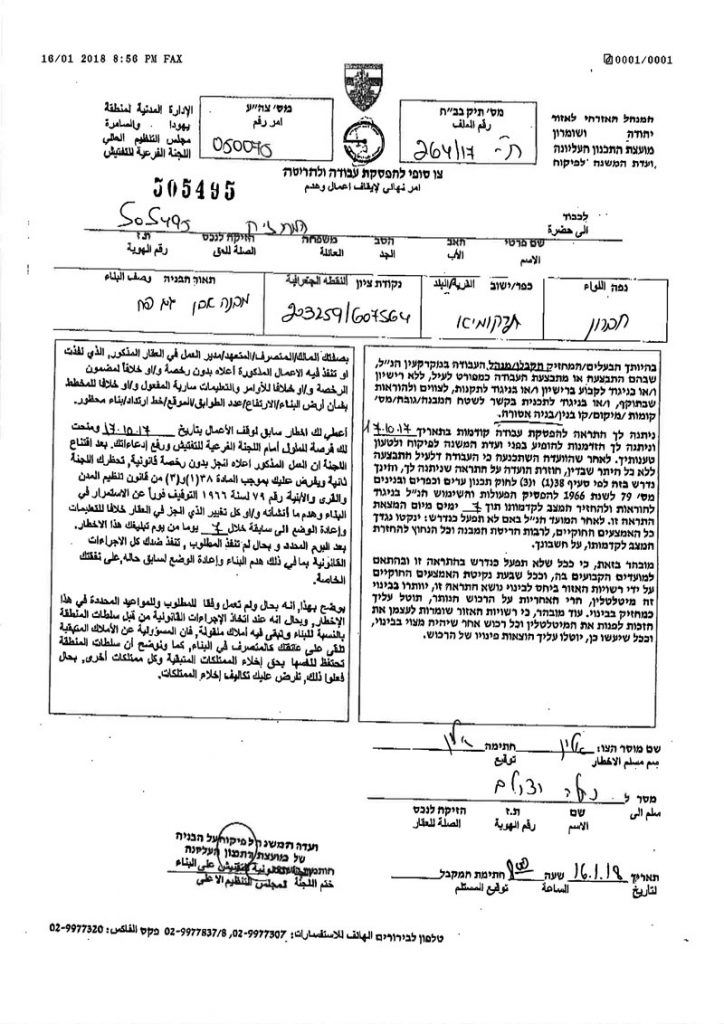 16/01 2018 8:56 PM FAX
0001/0001
המנהל האזרחי לאזור
יהודה ושומרון
מועצת התכנון העליונה
ועדת המשנה לפיקוח
מס' תיק בב"ח
رقم الملف
ת- 264/17
מס' צה"ע
امر رقم
050075
الإدارة المدنية لمنطقة
يهودا والسامرة
مجلس التنظيم العالي
اللجنة الفرعية للتفتيش
צו סופי להפסקת עבודה ולהריסה
امر نهائي لإيقاف اعمال وهدم
505495
לכבוד
الى حضرة
המחזיק 505495
שם פרטי האב הסב משפחה הזיקה לנכס ת.ז
الاسم الأب الجد العائلة الصلة للحق رقم الهوية
נפה اللواء
חברון
כפר/ישוב القرية/البلد
תרקומיא
נקודת ציון النقطة الجغرافية
203259/607564
תאור המבנה وصف البناء
מבנה אבן גג פח
בהיותך הבעלים/המחזיק הקבלן/מנהל העבודה במקרקעין הנ"ל,
שבהם התבצעה או מתבצעת העבודה כמפורט לעיל, ללא רישיון
ו/או בניגוד לקבוע ברישיון ו/או בניגוד לתקנות, לצווים ולהוראות
שבתוקף, ו/או בניגוד לתכנית בקשר לשטח המבנה/גובה/מס'
קומות /מיקום/קו בנין/בניה אסורה.
ניתנה לך התראה להפסקת עבודה קודמות בתאריך 17.10.17
וניתנה לך הזדמנות להופיע בפני ועדת המשנה לפיקוח ולטעון
טענותיך. לאחר שהוועדה השתכנעה כי העבודה דלעיל התבצעה
ללא כל היתר שבדין, חוזרת הועדה על התראה שניתנה לך, והינך
נדרש בזה לפי סעיף 38(1) ו(3) לחוק תכנון ערים וכפרים ובנינים
מס' 79 לשנת 1966 להפסיק הפעולות והשימוש הנ"ל בניגוד
להוראות ולהחזיר המצב לקדמותו תוך 7 ימים מיום המצאת
התראה זו. לאחר המועד הנ"ל באם לא תפעל כנדרש: ינקטו נגדך
כל האמצעים החוקיים, לרבות הריסת המבנה וכל הנחוץ להחזרת
המצב לקדמותו, על חשבונך.
מובהר בזאת, כי ככל שלא תפעל כנדרש בהתראה זו ובהתאם
למועדים הקבועים בה, וככל שבעת נקיטת האמצעים החוקיים
על ידי רשויות האזור ביחס לבינוי נושא התראה זו, יוותרו בבינוי
זה מיטלטלין, הרי האחריות על הרכוש הנותר, תוטל עליך
כמחזיק בבינוי. עוד מובהר, כי רשויות האזור שומרות לעצמן את
הזכות לפנות את המיטלטלין וכל רכוש אחר שיהיה מצוי בבינוי,
וככל שיעשו כן, יוטלו עליך הוצאות פינויו של הרכוש.
بصفتك المالك/المتصرف/المتعهد/مدير العمل في العقار المذكور, الذي نفذت
او تنفذ فيه الاعمال المذكورة أعلاه بدون رخصة و/او خلافاً لمضمون
الرخصة و/او خلافا للأوامر والتعليمات سارية المفعول و/او خلافا للمخطط
بشأن أرض البناء/الارتفاع/عدد الطوابق/الموقع/خط ارتداد/بناء محظور.
أعطي لك اخطار سابق لوقف الأعمال بتاريخ 17.10.17 ومنحت
لك فرصة للمثول أمام اللجنة الفرعية للتفتيش ورفع إدعاءاتك. بعد اقتناع
اللجنة ان العمل المذكور اعلاه انجز بدون رخصة قانونية, تحظرك اللجنة
ثانية ويفرض عليك بموجب المادة ٣٨(١)و(٣) من قانون تنظيم المدن
والقرى والأبنية رقم ٧٩ لسنة ١٩٦٦ التوقيف فوراً عن الاستمرار في
البناء وهدم ما أنشأته و/او كل تغيير الذي انجز في العقار خلافا للتعليمات
وإعادة الوضع الى سابقة خلال 7 يوما من يوم تبليغك هذا الاخطار.
بعد اليوم المحدد و بحال لم تنفذ المطلوب, تنفذ ضدك كل الاجراءات
القانونية بما في ذلك هدم البناء وإعادة الوضع لسابق حاله, على نفقتك
الخاصة.
يوضح بهذا, انه بحال ولم تعمل وفقا للمطلوب وللمواعيد المحددة في هذا
الإخطار, وبحال انه عند اتخاذ الإجراءات القانونية من قبل سلطات المنطقة
بالنسبة للبناء وتبقى فيه أملاك منقولة, فان المسؤولية عن الأملاك المتبقية
تلقى على عاتقك كالمتصرف في البناء, كما ونوضح أن سلطات المنطقة
تحتفظ لنفسها بحق إخلاء الممتلكات المتبقية وكل ممتلكات أخرى, بحال
فعلوا ذلك, تفرض عليك تكاليف إخلاء الممتلكات.
שם מוסר הצו: חתימה
اسم مسلم الاخطار توقيع
מסר ל
سلم الى
שם ת.ז הזיקה לנכס
الاسم رقم الهوية الصلة للعقار
תאריך 16.1.18 שעה חתימת המקבל
لتاريخ الساعة توقيع المستلم
ועדת המשנה לפיקוח על הבניה
של מועצת התכנון העליונה
ختم اللجنة لمجلس التنظيم الاعلى
טלפון לבירורים الهاتف للاستفسارات: 02-9977307, 02-9977837/8 פקס الفاكس: 02-9977320